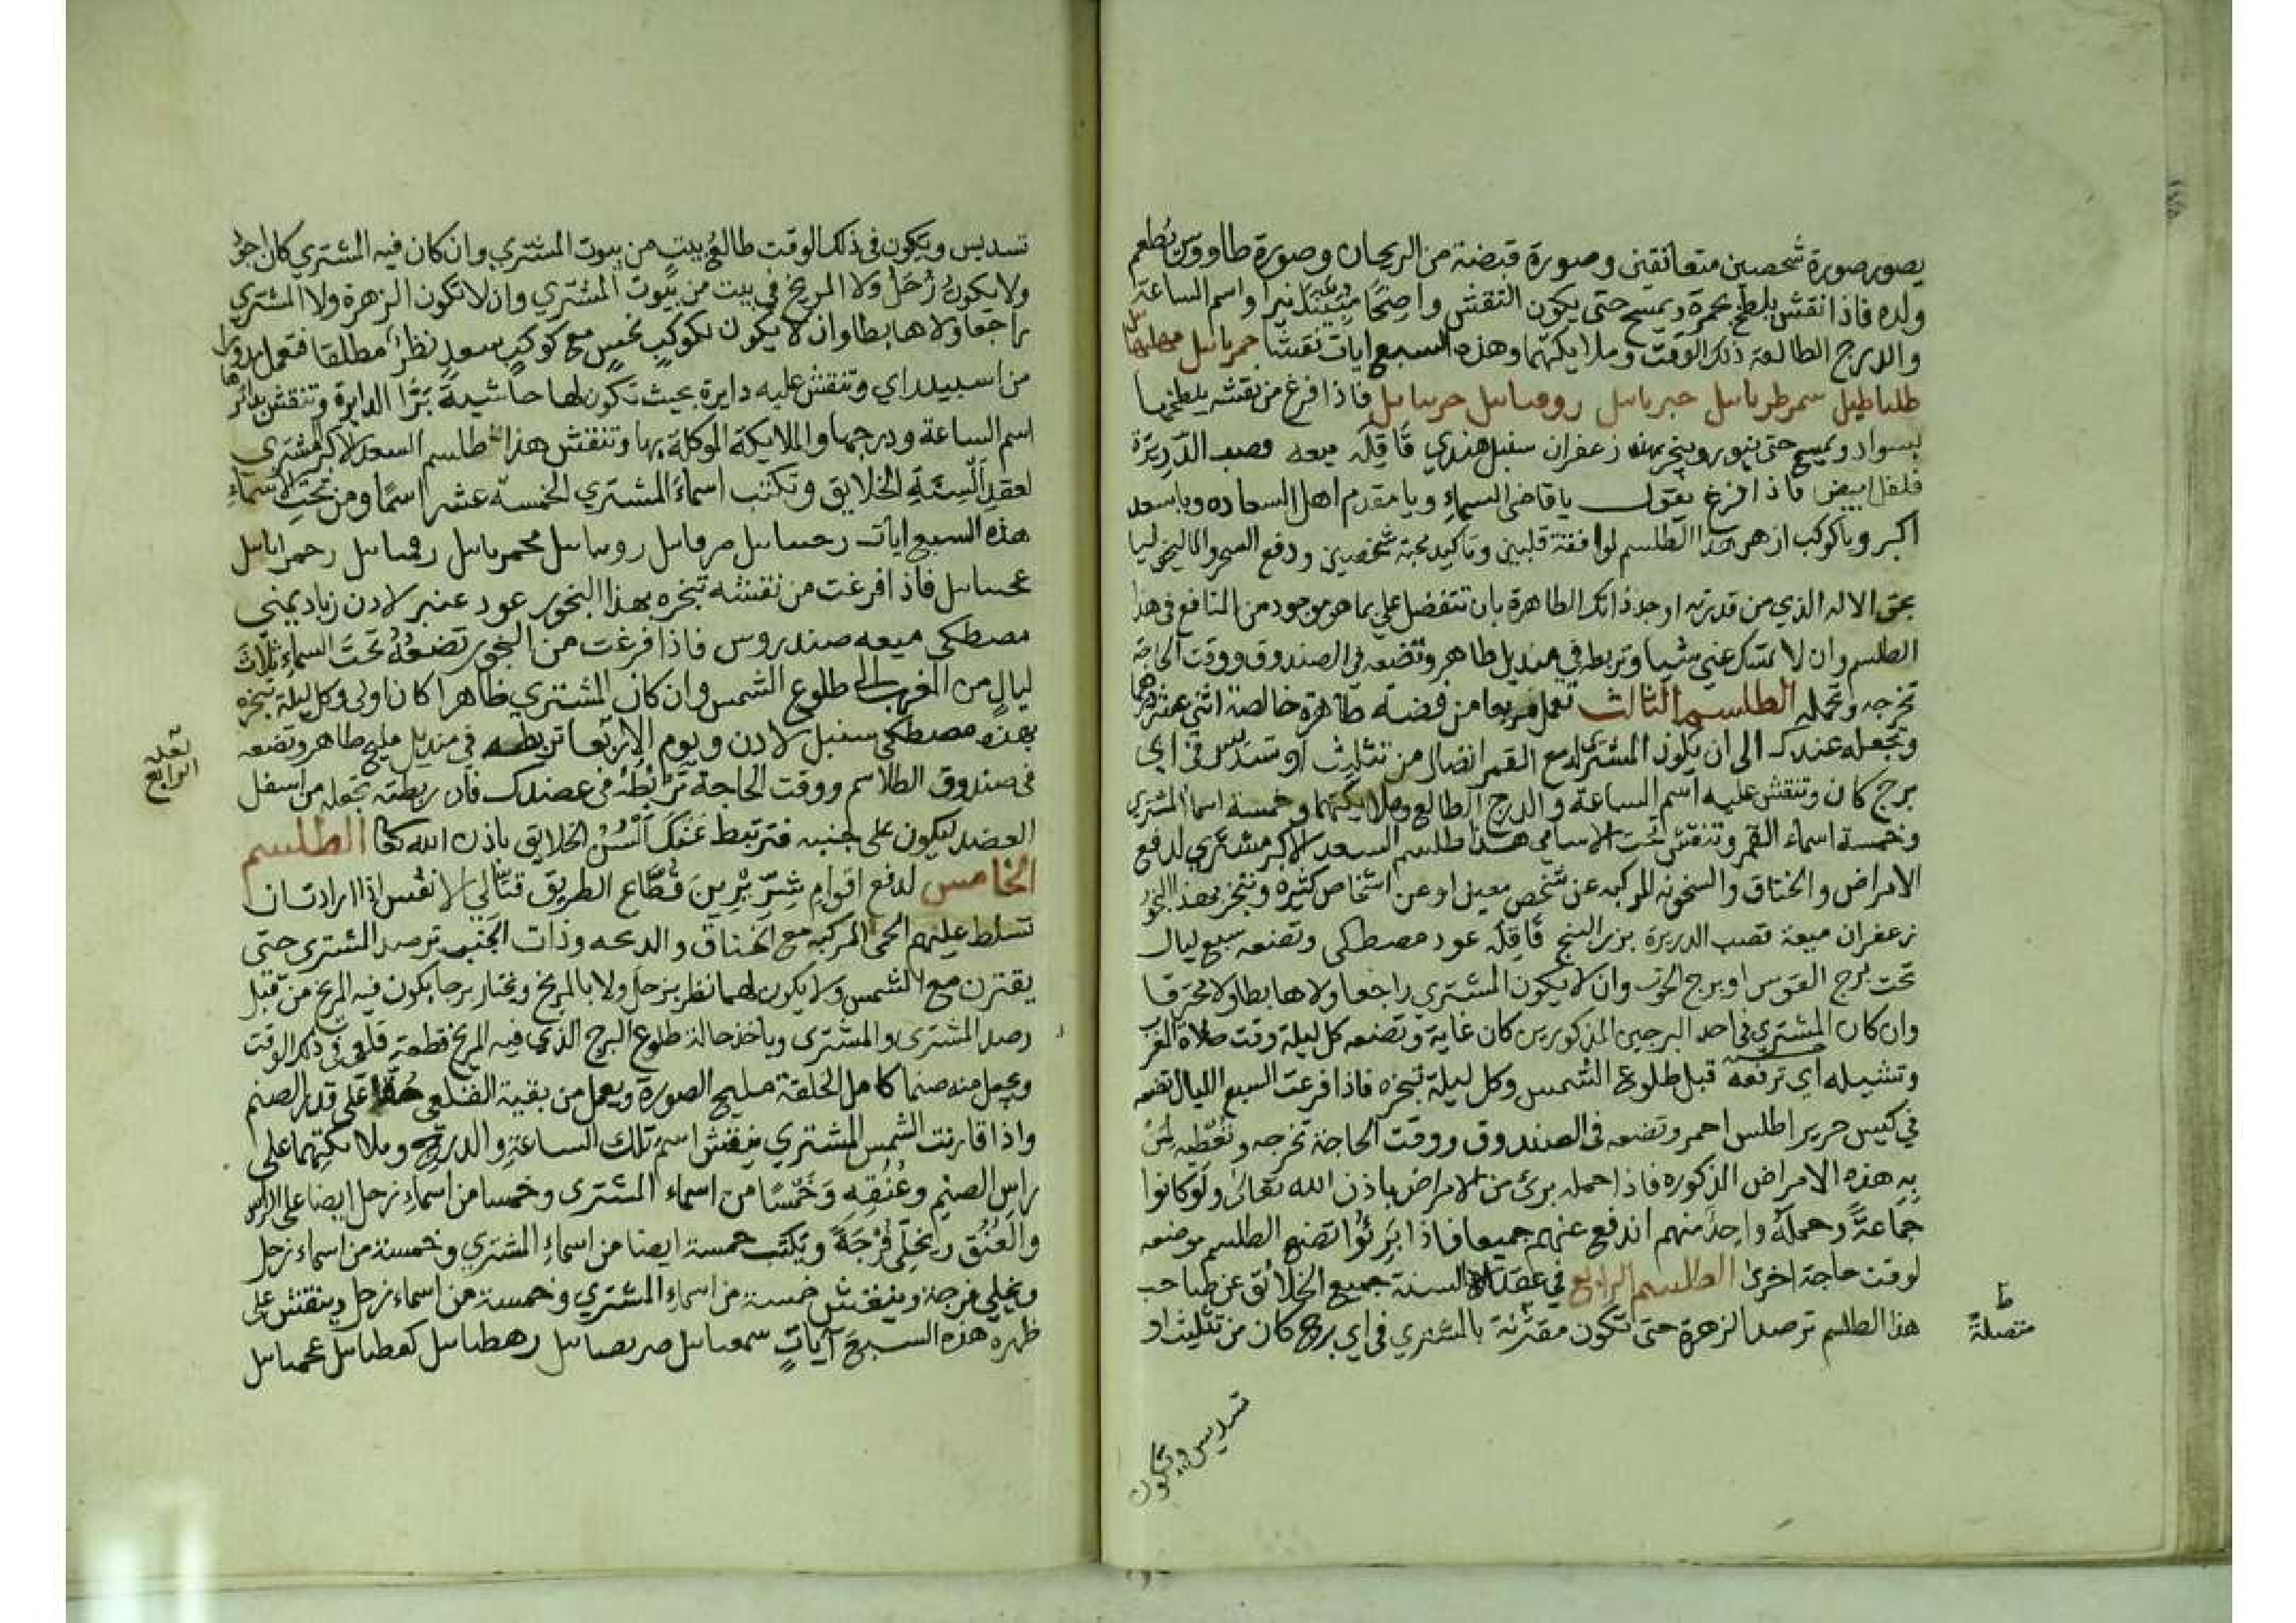 يصور صورة شخصين متعانقين وصورة قبضة من الريحان وصورة طاووس يطعم
ولده فاذا نقش يلطخ بحمرة ويمسح حتى يكون النقش واضحًا نيرا واسم الساعة
والدرج الطالعة ذلك الوقت وملايكتهما وهذه السبع ايات نقشا
فاذا فرغ من نقشه يلطخها
بسواد ويمسح حتى ينور ويبخر بهذه زعفران سنبل هندي قاقله ميعه قصب الذريرة
فلفل ابيض فاذا فرغ يقول يا قاضى السماء ويا مقدم اهل السعاده ويا سعد
اكبر ويا كوكب ازهر هذا الطلسم لموافقة قلبين وتاكيد محبة شخصين ودفع السحر والماليخوليا
بحق الاله الذي من قدرته اوجد ذاتك الطاهرة بان تتفضل علي بما هو موجود من المنافع فى هذا
الطلسم وان لا تمسك عني شيا وتربطه في منديل طاهر وتضعه في الصندوق ووقت الحاجة
تخرجه وتحمله الطلسم الثالث تعمل مربعا من فضة طاهرة خالصة اثنى عشر درهما
وتجعله عندك الى ان يكون المشترى مع القمر اتصال من تثليث او تسديس في اي
برج كان وتنقش عليه اسم الساعة والدرج الطالع وملايكتهما وخمسة اسماء المشتري
وخمسة اسماء القمر وتنقش تحت الاسامي هذا طلسم السعد الاكبر مشتري لدفع
الامراض والخناق والسخونه المركبه عن شخص معين او عن اشخاص كثيرة وتبخر بهذا البخور
زعفران ميعة قصب الدريرة بزر البنج قاقله عود مصطكى وتضعه سبع ليال
تحت برج القوس او برج الحوت وان لا يكون المشتري راجعا ولا هابطا ولا محترقا
وان كان المشتري في احد البرجين المذكورين كان غاية وتضعه كل ليلة وقت صلاة المغرب
وتشيله اي ترفعه قبل طلوع الشمس وكل ليلة تبخره فاذا فرغت السبع الليال تضعه
في كيس حرير اطلس احمر وتضعه فى الصندوق ووقت الحاجة تخرجه وتعطيه لمن
به هذه الامراض المذكوره فاذا حمله برئ من الامراض باذن الله تعالى ولو كانوا
جماعةً وحمله واحد منهم اندفع عنهم جميعا فاذا برئوا تضع الطلسم موضعه
لوقت حاجة اخرى الطلسم الرابع في عقد السنة جميع الخلائق عن صاحب
هذا الطلسم ترصد الزهرة حتى تكون مقترنة بالمشتري في اي برج كان من تثليث او
ط
متصلة
تسديس ويكون
تسديس ويكون فى ذلك الوقت طالع بيت من بيوت المشتري وان كان فيه المشتري كان اجود
ولا يكون زحل ولا المريخ في بيت من بيوت المشتري وان لا تكون الزهرة ولا المشتري
راجعا ولا هابطا وان لا يكون لكوكبٍ نحسٍ مع كوكبٍ سعدٍ نظر مطلقا فتعمل
من اسبيدراي وتنقش عليه دايرة بحيث تكون لها حاشية بَرَّا الدايرة وتنقش
اسم الساعة ودرجها والملايكة الموكلة بها وتنقش هذا طلسم السعد الاكبر مشتري
لعقد السنة الخلايق وتكتب اسماء المشتري الخمسة عشر اسمًا ومن تحت الاسماء
هذه السبع ايات
فاذا فرغت من نقشه تبخره بهذا البخور عود عنبر لادن زباد يمني
مصطكي ميعه صندروس فاذا فرغت من البخور تضعه تحت السماء ثلاث
ليالٍ من المغرب الى طلوع الشمس وان كان المشتري ظاهرا كان اولى وكل ليلة تبخره
بهذه مصطكي سنبل لادن ويوم الاربعا تربطه في منديل مليح طاهر وتضعه
فى صندوق الطلاسم ووقت الحاجة تربطه في عضدك فان ربطته تجعله من اسفل
العضد ليكون على جنبه فترتبط عنك السن الخلايق باذن الله تعالى الطلسم
الخامس لدفع اقوام شريرين قطاع الطريق قتالي الانفس اذا اردت ان
تسلط عليهم الحمى المركبه مع الخناق والدبحه وذات الجنب ترصد المشترى حتى
يقترن مع الشمس ولا يكون لهما نظر بزحل ولا بالمريخ ويختار برجا يكون فيه المريخ من قبل
رصد المشترى والمشترى وياخذ حالة طلوع البرج الذي فيه المريخ قطعة قلعى في ذلك الوقت
ويعمل منه صنما كامل الخلقة مليح الصورة ويعمل من بقية القلعى حقا على قدر الصنم
واذا قارنت الشمس المشتري ينقش اسم تلك الساعة والدرجة وملائكتهما على
راس الصنم وعنقه وخمسًا من اسماء المشترى وخمسا من اسماء زحل ايضا على الراس
والعنق ويخلى فرجة ويكتب خمسة ايضا من اسماء المشتري وخمسة من اسماء زحل
ويخلي فرجة وينقش خمسة من اسماء المشتري وخمسة من اسماء زحل وينقش على
ظهره هذه السبع آيات
الرابع